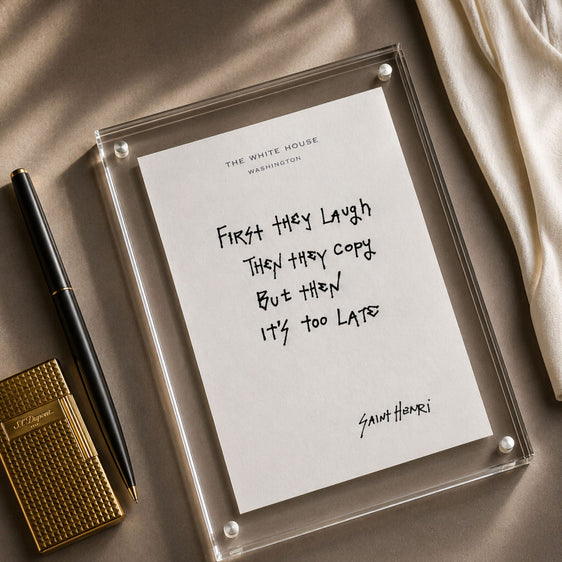 THE WHITE HOUSE
WASHINGTON
FIRST THEY LAUGH
THEN THEY COPY
BUT THEN
IT'S TOO LATE
SAINT HENRI
S.T. Dupont